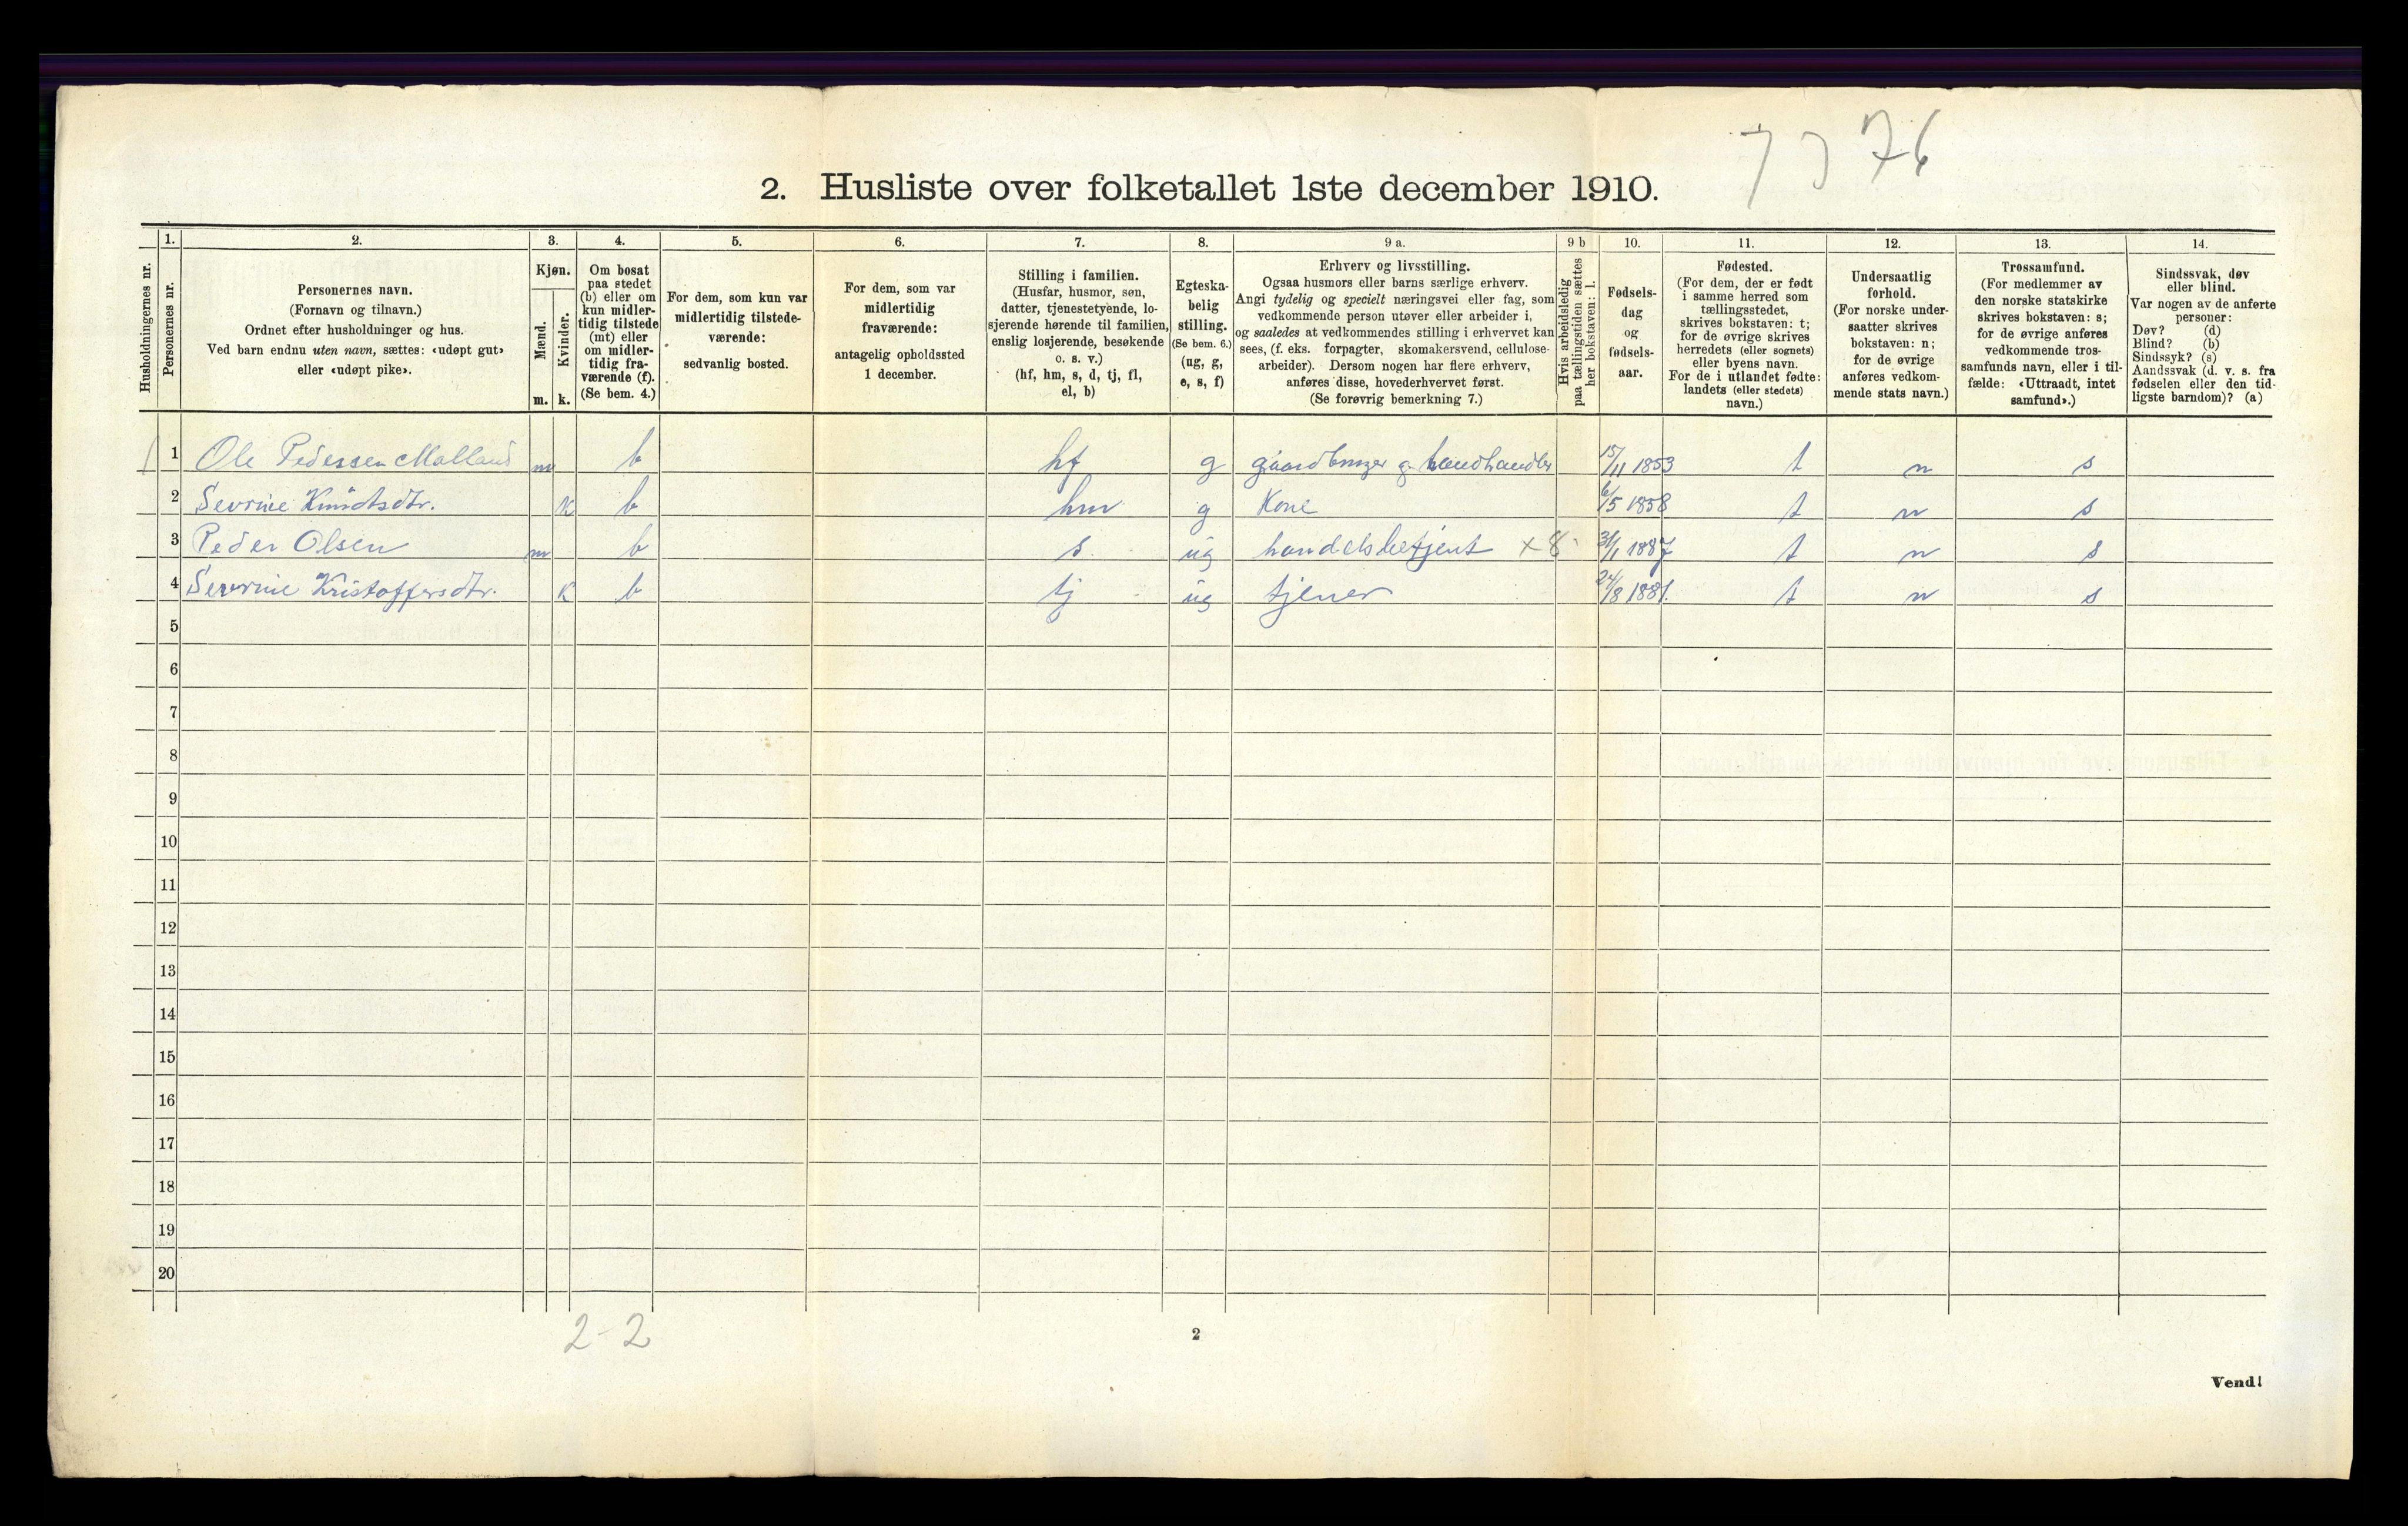 76
2. Husliste over folketallet 1ste december 1910.
Husholdningernes nr.
1.
Personernes nr.
2.
Personernes navn.
(Fornavn og tilnavn.)
Ordnet efter husholdninger og hus.
Ved barn endnu uten navn, sættes: «udøpt gut»
eller «udøpt pike».
3.
Kjøn.
Mænd.
Kvinder.
m. k.
4.
Om bosat
paa stedet
(b) eller om
kun midler-
tidig tilstede
(mt) eller
om midler-
tidig fra-
værende (f).
(Se bem. 4.)
5.
For dem, som kun var
midlertidig tilstede-
værende:
sedvanlig bosted.
6.
For dem, som var
midlertidig
fraværende:
antagelig opholdssted
1 december.
7.
Stilling i familien.
(Husfar, husmor, søn,
datter, tjenestetyende, lo-
sjerende hørende til familien,
enslig losjerende, besøkende
o. s. v.)
(hf, hm, s, d, tj, fl,
el, b)
8.
Egteska-
belig
stilling.
(Se bem. 6.)
(ug, g,
e, s, f)
9 a.
Erhverv og livsstilling.
Ogsaa husmors eller barns særlige erhverv.
Angi tydelig og specielt næringsvei eller fag, som
vedkommende person utøver eller arbeider i,
og saaledes at vedkommendes stilling i erhvervet kan
sees, (f. eks. forpagter, skomakersvend, cellulose-
arbeider). Dersom nogen har flere erhverv,
anføres disse, hovederhvervet først.
(Se forøvrig bemerkning 7.)
9 b
Hvis arbeidsledig
paa tællingstiden sættes
her bokstaven: l.
10.
Fødsels-
dag
og
fødsels-
aar.
11.
Fødested.
(For dem, der er født
i samme herred som
tællingsstedet,
skrives bokstaven: t;
for de øvrige skrives
herredets (eller sognets)
eller byens navn.
For de i utlandet fødte:
landets (eller stedets)
navn.)
12.
Undersaatlig
forhold.
(For norske under-
saatter skrives
bokstaven: n;
for de øvrige
anføres vedkom-
mende stats navn.)
13.
Trossamfund.
(For medlemmer av
den norske statskirke
skrives bokstaven: s;
for de øvrige anføres
vedkommende tros-
samfunds navn, eller i til-
fælde: «Uttraadt, intet
samfund».)
14.
Sindssvak, døv
eller blind.
Var nogen av de anførte
personer:
Døv? (d)
Blind? (b)
Sindssyk? (s)
Aandssvak (d. v. s. fra
fødselen eller den tid-
ligste barndom)? (a)
1 Ole Pederssen Malland m b hf g gaardbruger g landhandler 15/11 1853 t n s
2 Sevrine Knudtsdtr. k b hm g Kone 6/5 1858 t n s
3 Peder Olsen m b s ug handelsbetjent × 8 31/1 1887 t n s
4 Sevrine Kristoffersdtr. k b tj ug tjener 24/8 1881. t n s
5
6
7
8
9
10
11
12
13
14
15
16
17
18
19
20
2-2
2
Vend!